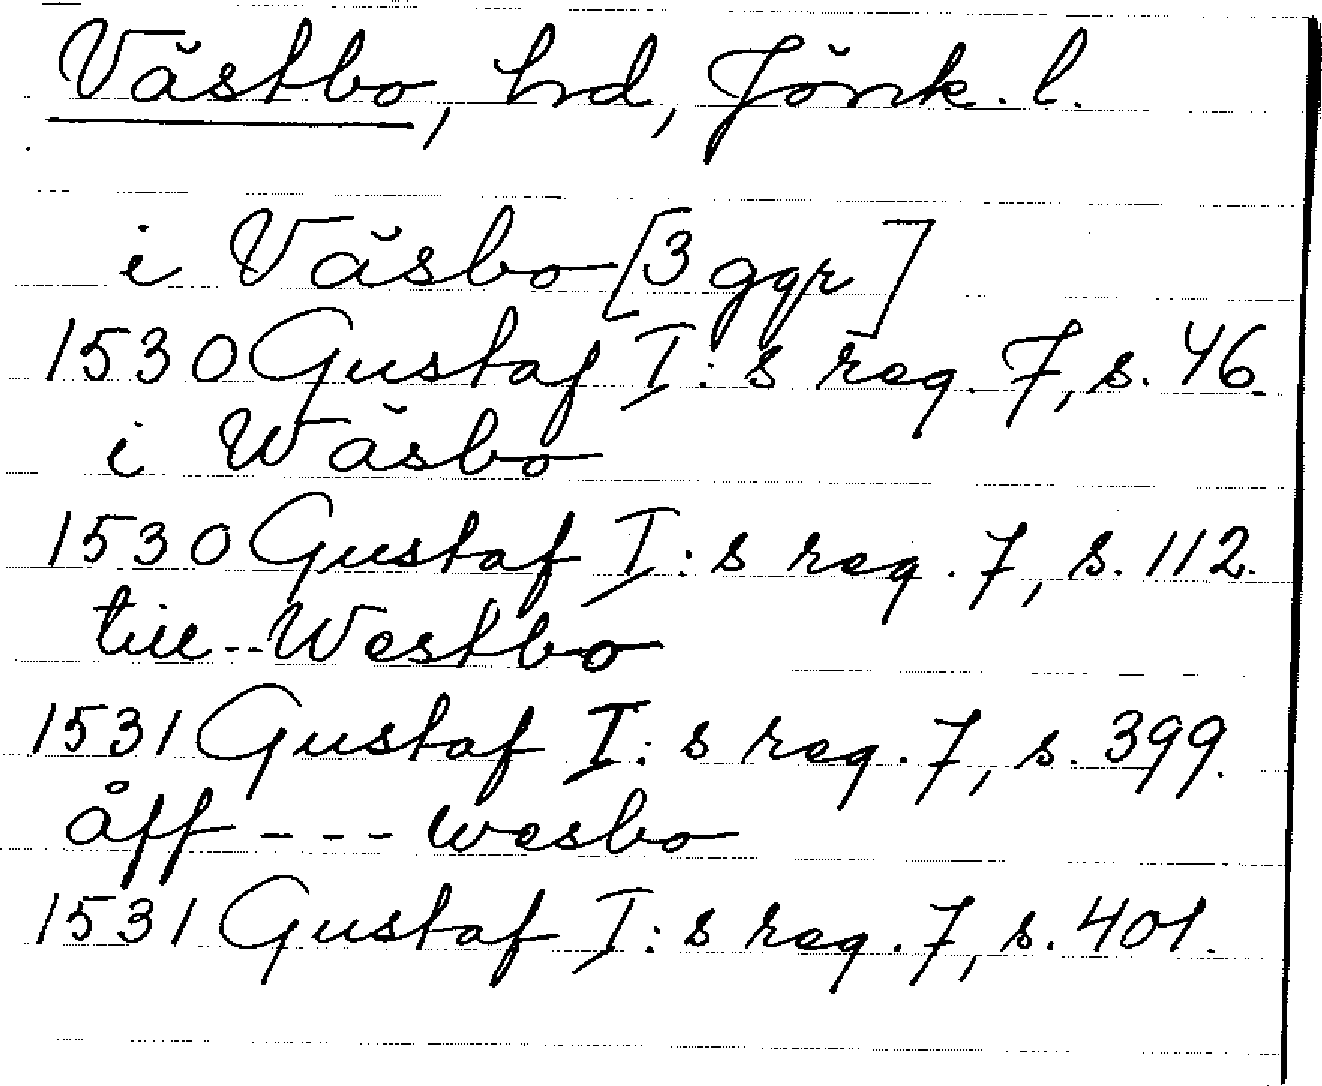 Västbo, hd, Jönk. l.
i Väsbo [3 ggr]
1530 Gustaf I:s reg. 7, s. 46.
i Wäsbo
1530 Gustaf I:s reg. 7, s. 112.
till -- Westbo
1531 Gustaf I:s reg. 7, s. 399.
åff --- wesbo
1531 Gustaf I:s reg. 7, s. 401.